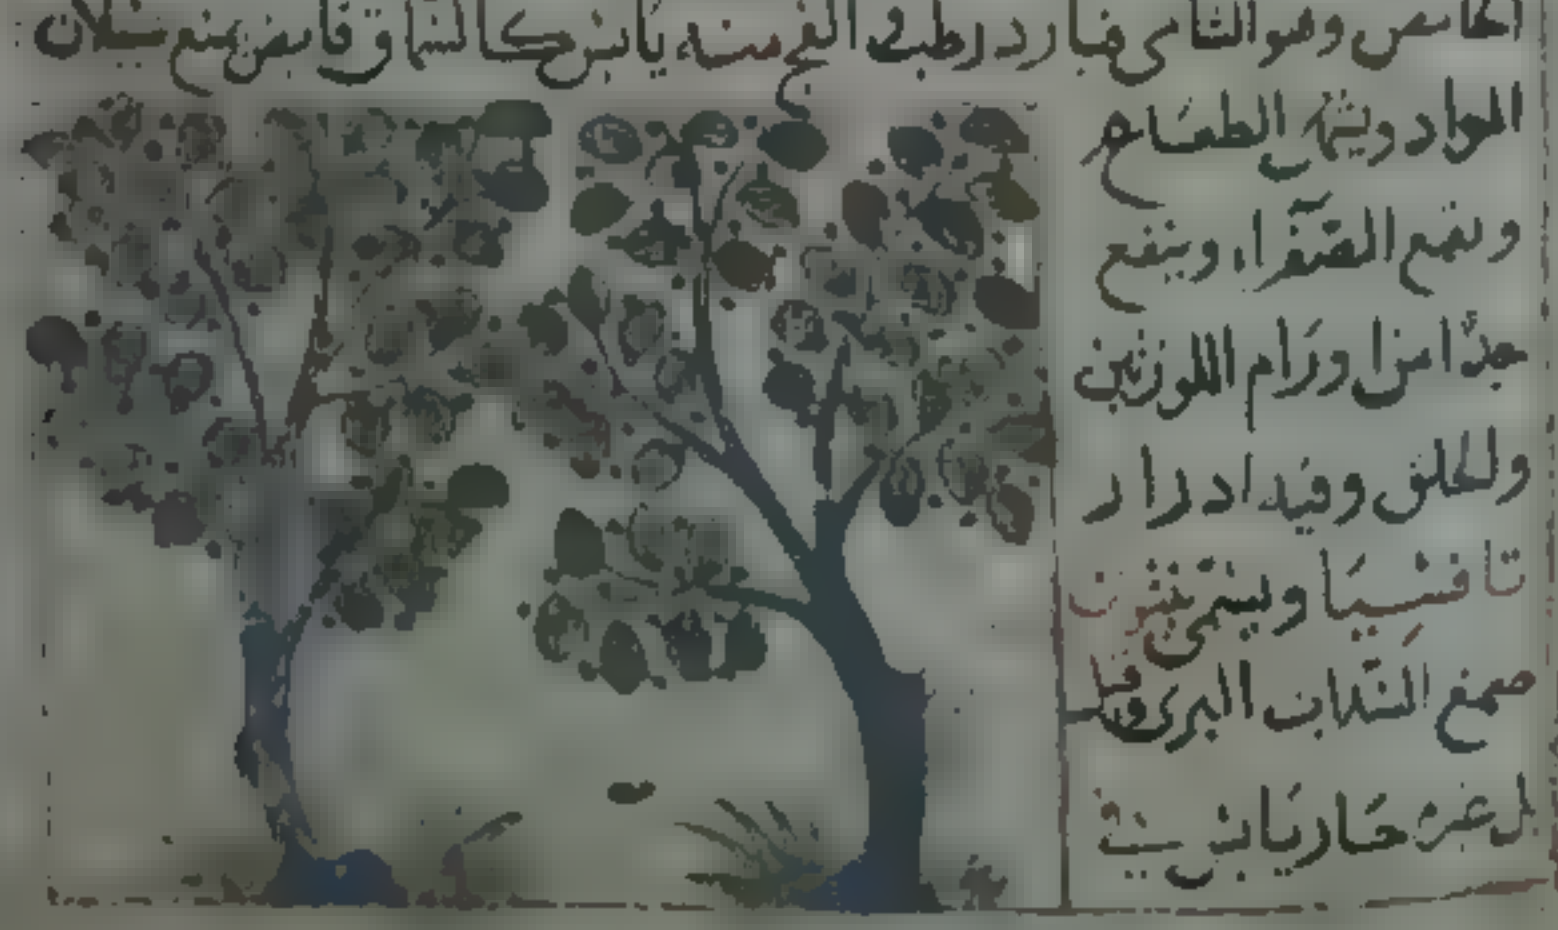 الحامض وهو التامى فبارد رطب الفج منه يابس كالسماق قابض يمنع سيلان
المواد ويشهى الطعام
ويقمع الصفراء وينفع
جدا من اورام اللوزتين
والحلق وفيه ادرار
تافسيا ويسمى ينتون
صمغ السداب البرى وقيل
غيره حار يابس فى